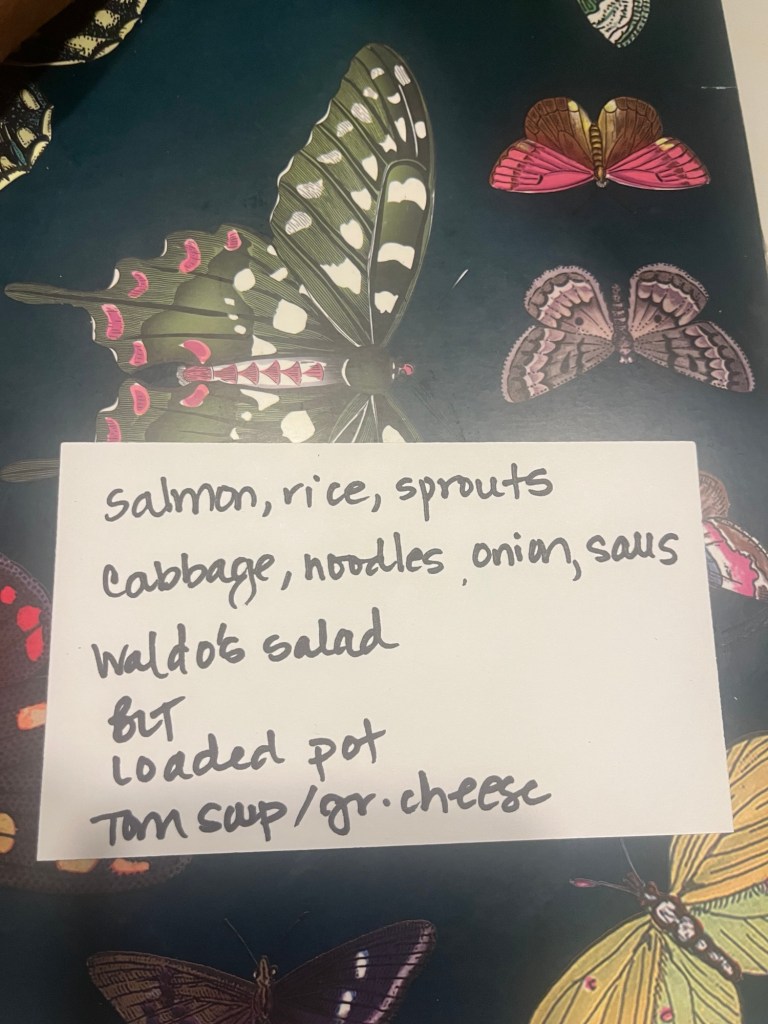 salmon, rice, sprouts
cabbage, noodles, onion, saus
Waldo's salad
BLT
Loaded pot
Tom soup/gr. cheese